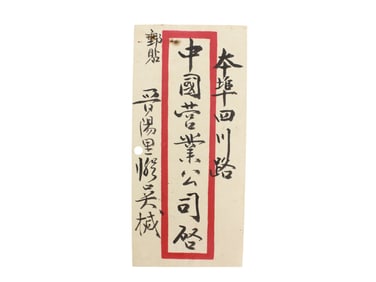 本埠四川路
中國营業公司啓
郵貼
晋陽里